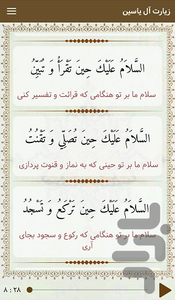 زیارت آل یاسین
السَّلامُ عَلَيْكَ حِينَ تَقْرَأُ وَ تُبَيِّنُ
سلام ما بر تو هنگامی که قرائت و تفسیر کنی
السَّلامُ عَلَيْكَ حِينَ تُصَلِّي وَ تَقْنُتُ
سلام ما بر تو حینی که به نماز و قنوت پردازی
السَّلامُ عَلَيْكَ حِينَ تَرْكَعُ وَ تَسْجُدُ
سلام ما بر تو هنگامی که رکوع و سجود بجای
آری
۸ : ۲۸